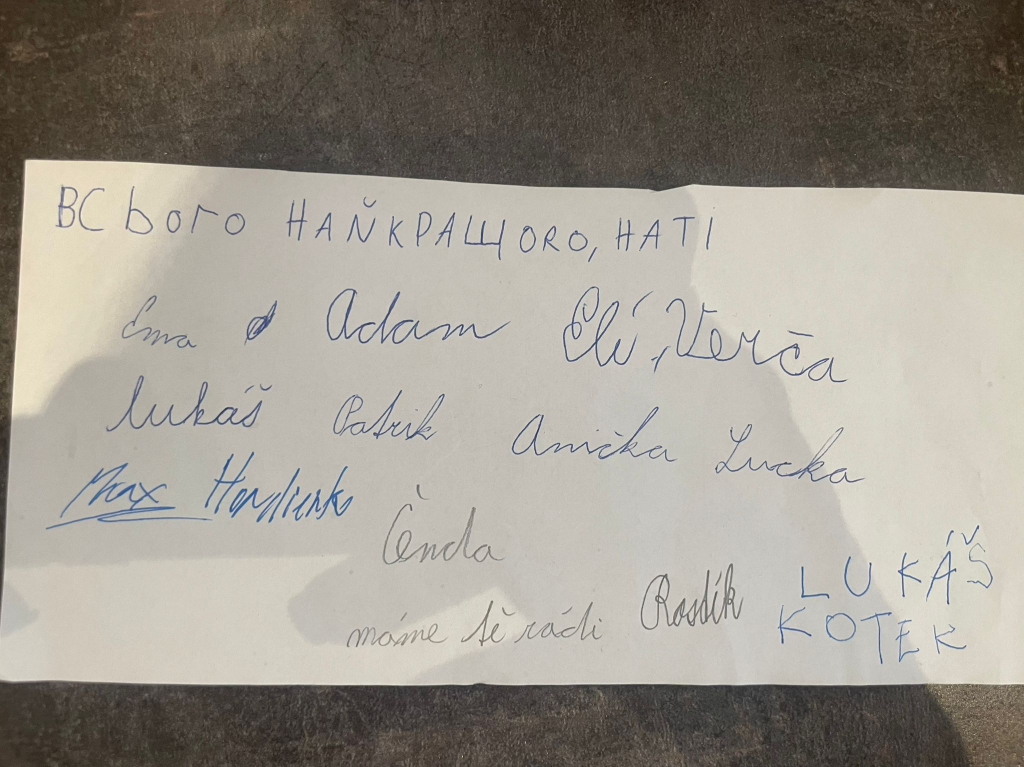 ВС ЬОГО НАЙКРАЩОГО, НАТІ
Ema Adam Elí, Verča
Lukáš Patrik Anička Lucka
Max Hordienko
Čenda
máme tě rádi Rostík LUKÁŠ
KOTEK